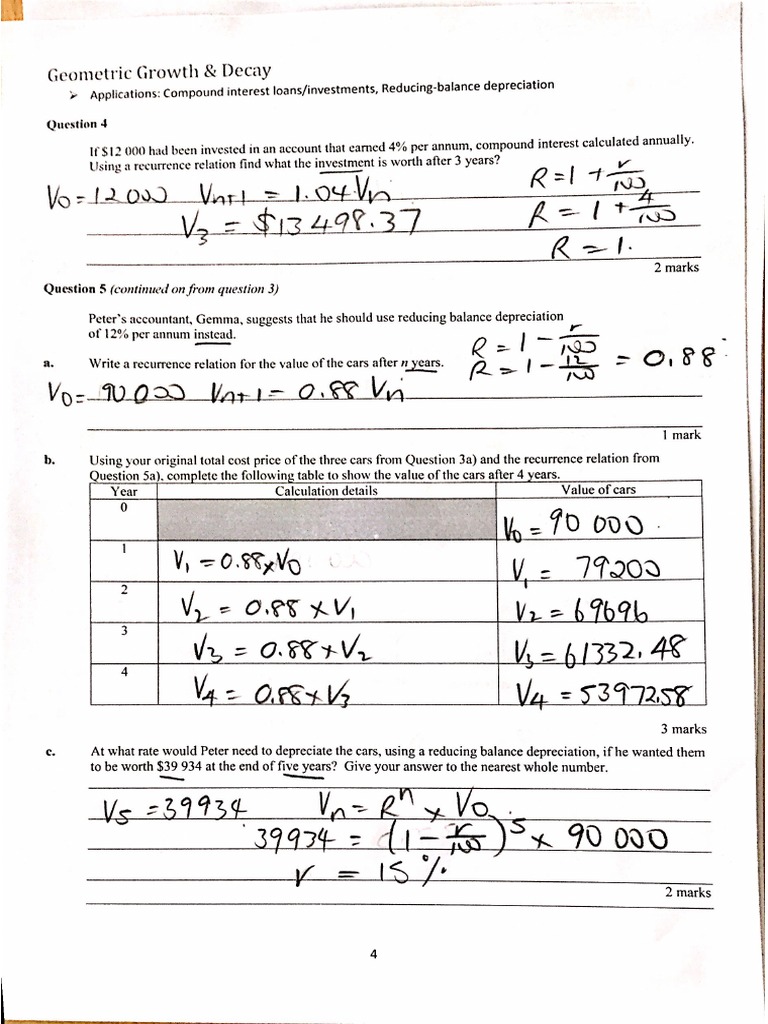 Geometric Growth & Decay
➤ Applications: Compound interest loans/investments, Reducing-balance depreciation
Question 4
If $12 000 had been invested in an account that earned 4% per annum, compound interest calculated annually.
Using a recurrence relation find what the investment is worth after 3 years?
V0 = 12000 Vn+1 = 1.04Vn
R = 1 + r/100
V3 = $13498.37
R = 1 + 4/100
R = 1.
2 marks
Question 5 (continued on from question 3)
Peter's accountant, Gemma, suggests that he should use reducing balance depreciation
of 12% per annum instead.
R = 1 - r/100
a. Write a recurrence relation for the value of the cars after n years.
R = 1 - 12/100 = 0.88
V0 = 90000 Vn+1 = 0.88 Vn
1 mark
b. Using your original total cost price of the three cars from Question 3a) and the recurrence relation from
Question 5a), complete the following table to show the value of the cars after 4 years.
Year Calculation details Value of cars
0 V0 = 90 000.
1 V1 = 0.88×V0 V1 = 79200
2 V2 = 0.88 × V1 V2 = 69696
3 V3 = 0.88×V2 V3 = 61332.48
4 V4 = 0.88×V3 V4 = 53972.58
3 marks
c. At what rate would Peter need to depreciate the cars, using a reducing balance depreciation, if he wanted them
to be worth $39 934 at the end of five years? Give your answer to the nearest whole number.
V5 = 39934 Vn = R^n × V0.
39934 = (1 - r/100)^5 × 90 000
r = 15%
2 marks
4